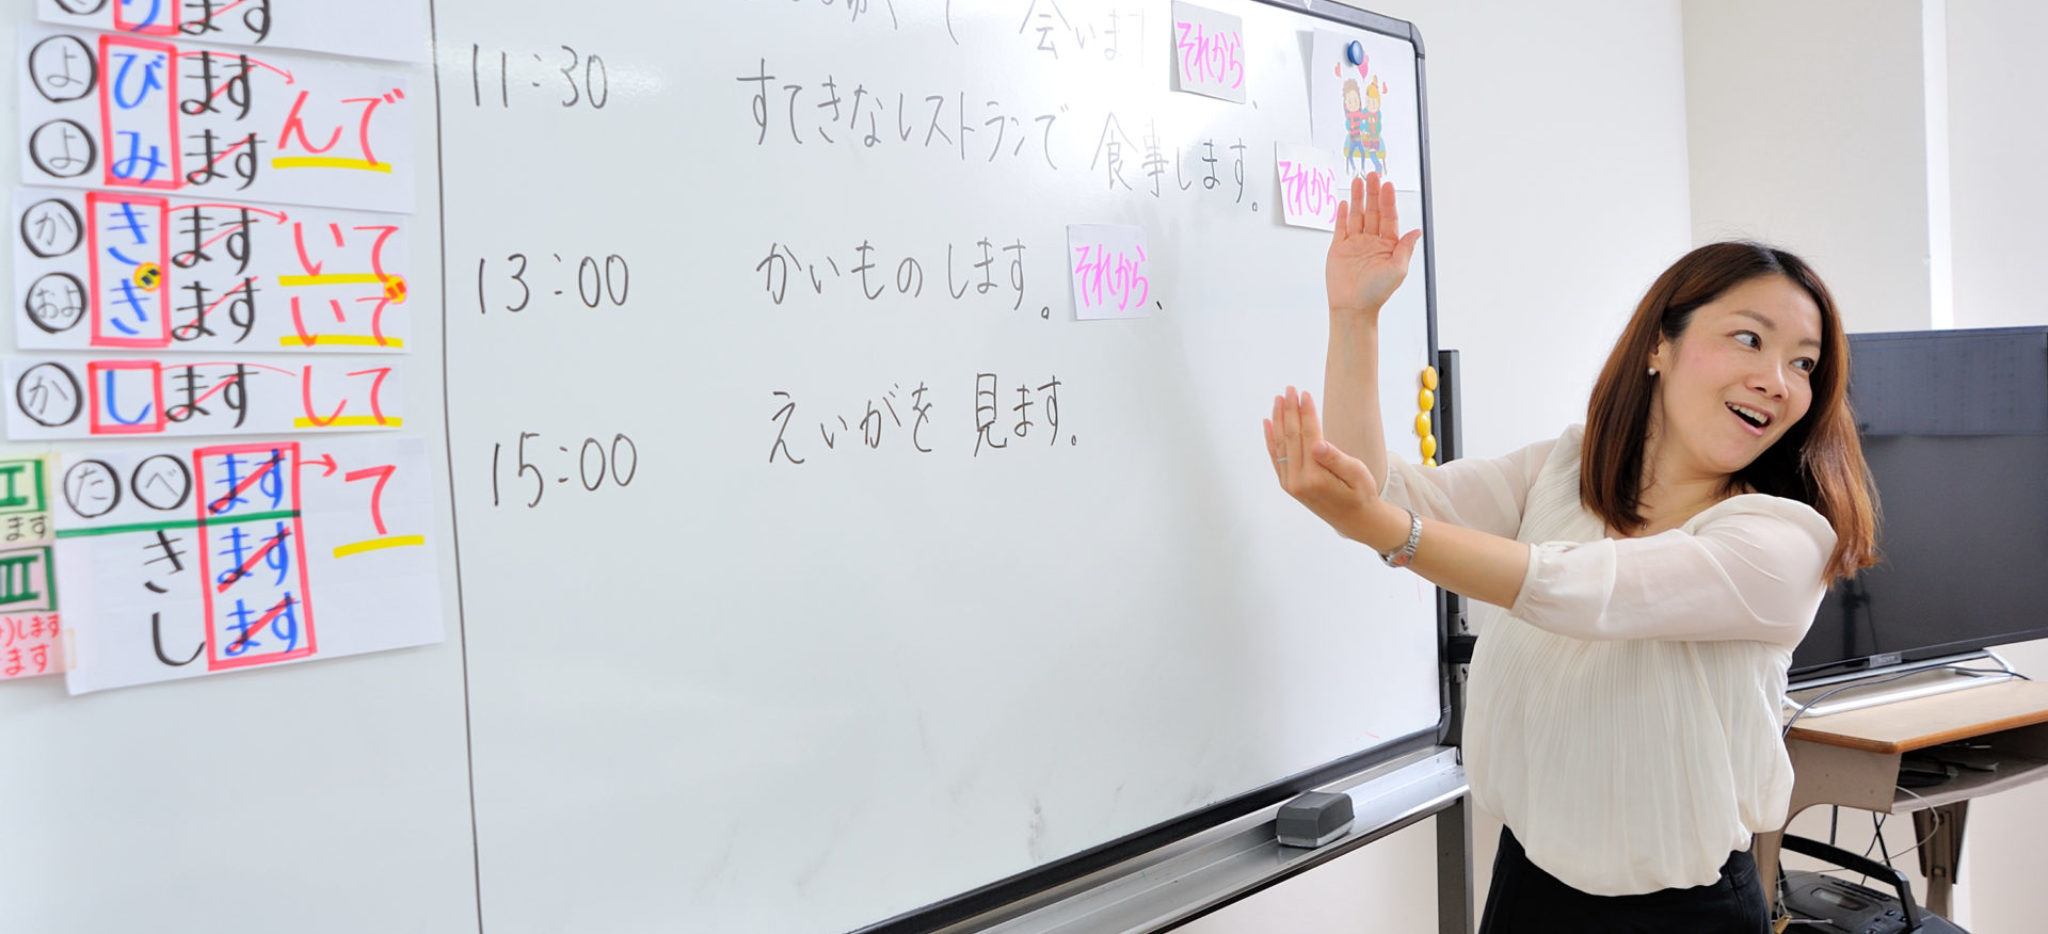 ります
よびます んで
よみます
かきます いて
およぎます いて
かします して
II たべます て
ます
きます
III します
します
ます
会います それから、
11:30 すてきなレストランで 食事します。それから
13:00 かいものします。それから、
15:00 えいがを 見ます。
SONY